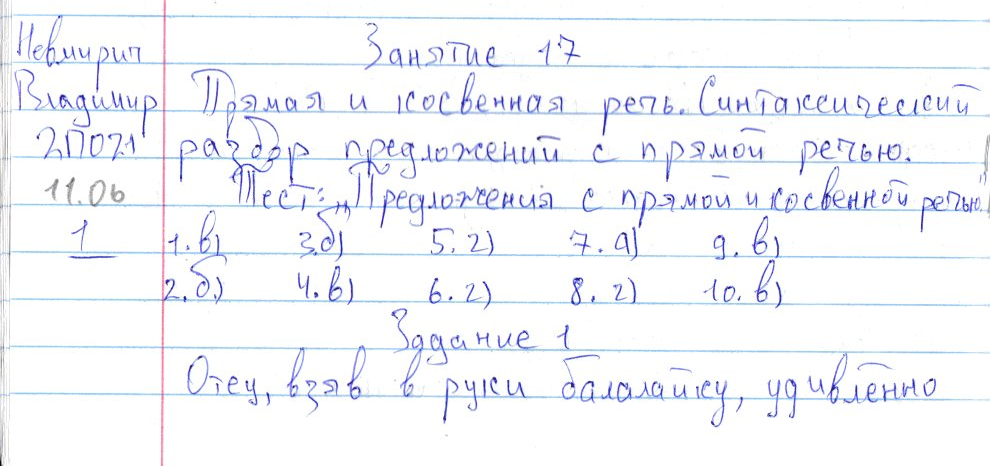 Невмирич
Занятие 17
Владимир Прямая и косвенная речь. Синтаксический
2ПО21 разбор предложений с прямой речью.
11.06 Тест: „Предложения с прямой и косвенной речью"
1 1. в) 3. б) 5. г) 7. а) 9. в)
2. б) 4. в) 6. г) 8. г) 10. в)
Задание 1
Отец, взяв в руки балалайку, удивлённо